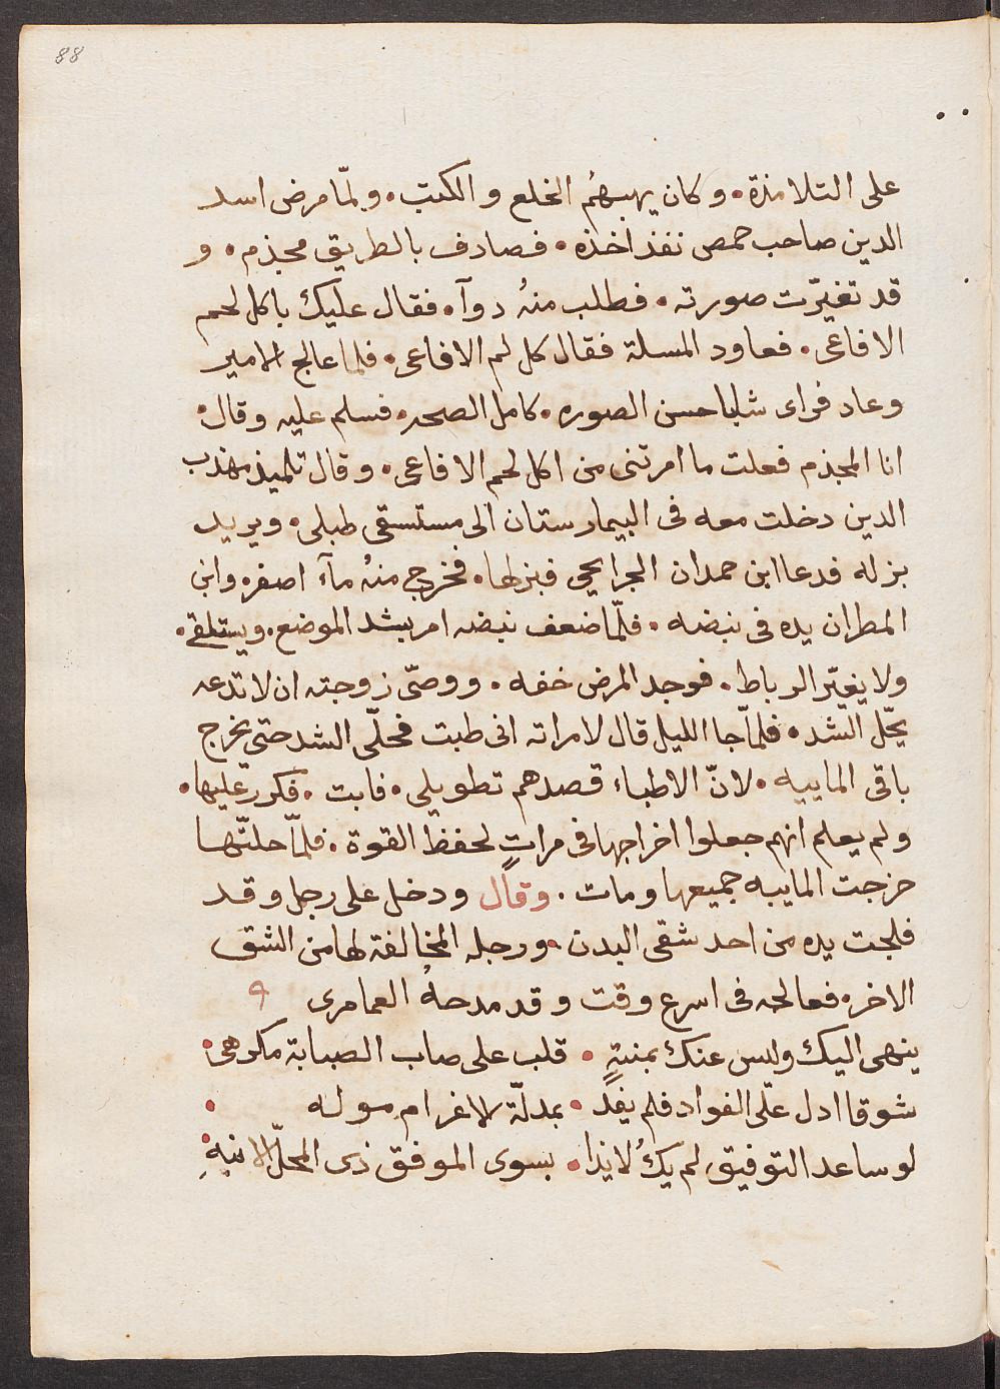 88
على التلامذة. وكان يهبهُم الخلع والكتب. ولمّا مرض اسد
الدين صاحب حمص نفذ اخذه. فصادف بالطريق مجذم. و
قد تغيّرت صورته. فطلب منهُ دوآ. فقال عليك باكل لحم
الافاعى. فعاود المسلة فقال كل لحم الافاعى. فلما عالج الامير
وعاد فراى شابا حسن الصوره. كامل الصحه. فسلم عليه وقال.
انا المجذم فعلت ما امرتنى من اكل لحم الافاعى. وقال تلميذ مهذب
الدين دخلت معه فى البيمارستان الى مستسقى طبلى. ويريد
بزله فدعا ابن حمدان الجرايحي فبزلها. فخرج منهُ مآء اصفر. وابن
المطران يده فى نبضه. فلمّا ضعف نبضه امر بشد الموضع. ويستلقى.
ولا يغيّر الرباط. فوجد المرض خفه. ووصّى زوجته ان لا تدعه
يحّل الشد. فلمّا جا الليل قال لامراته انى طبت فحلّى الشد حتى يخرج
باقى الماييه. لانّ الاطباء قصدهم تطويلى. فابت. فكرر عليها.
ولم يعلم انهم جعلوا اخراجها فى مراتٍ لحفظ القوة. فلمّا حلتّها
خرجت الماييه جميعها ومات. وقال ودخل على رجل وقد
فلجت يده من احد شقى البدن. ورجله المخالفة لها من الشق
الاخر. فعالجه فى اسرع وقت وقد مدحهُ العمامرى
ينهى اليك وليس عنك بمنتهٍ. قلب على صاب الصبابة مكرهى.
شوقا ادل على الفواد فلم يفد. بمدلّة لاغرام موله.
لو ساعد التوفيق لم يكُ لايذا. بسوى الموفق ذى المحلّ الانبهِ.